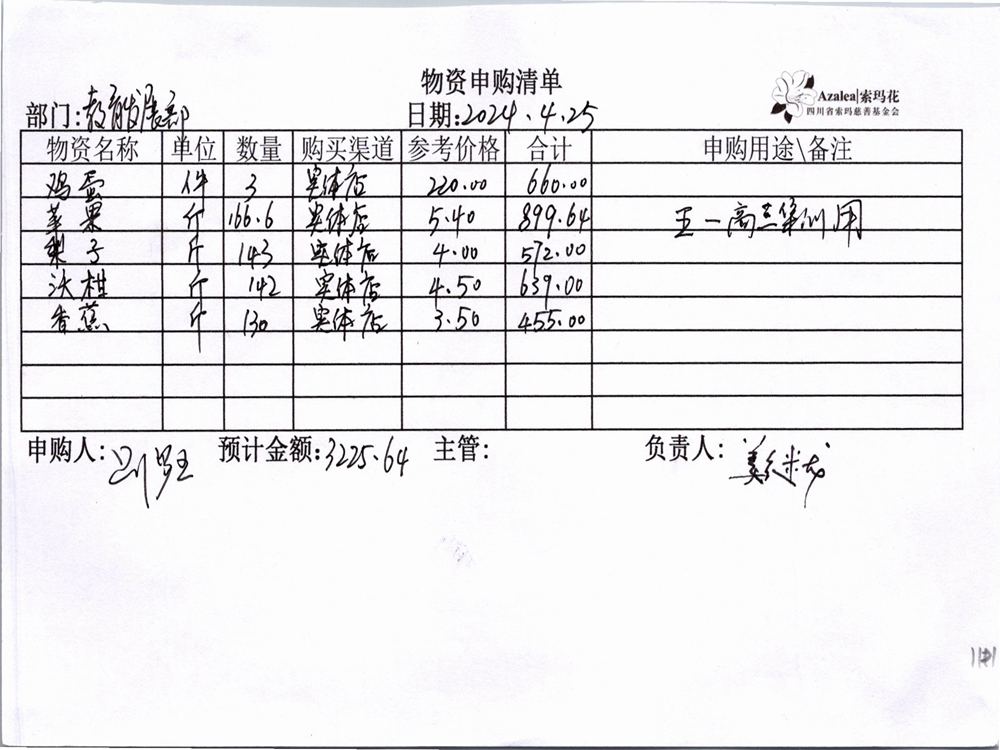 物资申购清单
Azalea|索玛花
四川省索玛慈善基金会
部门:教育发展部 日期:2024.4.25
物资名称 单位 数量 购买渠道 参考价格 合计 申购用途\备注
鸡蛋 件 3 实体店 220.00 660.00
苹果 斤 166.6 实体店 5.40 899.64 五一高三集训用
梨子 斤 143 实体店 4.00 572.00
沃柑 斤 142 实体店 4.50 639.00
香蕉 斤 130 实体店 3.50 455.00
申购人: 预计金额:3225.64 主管: 负责人: